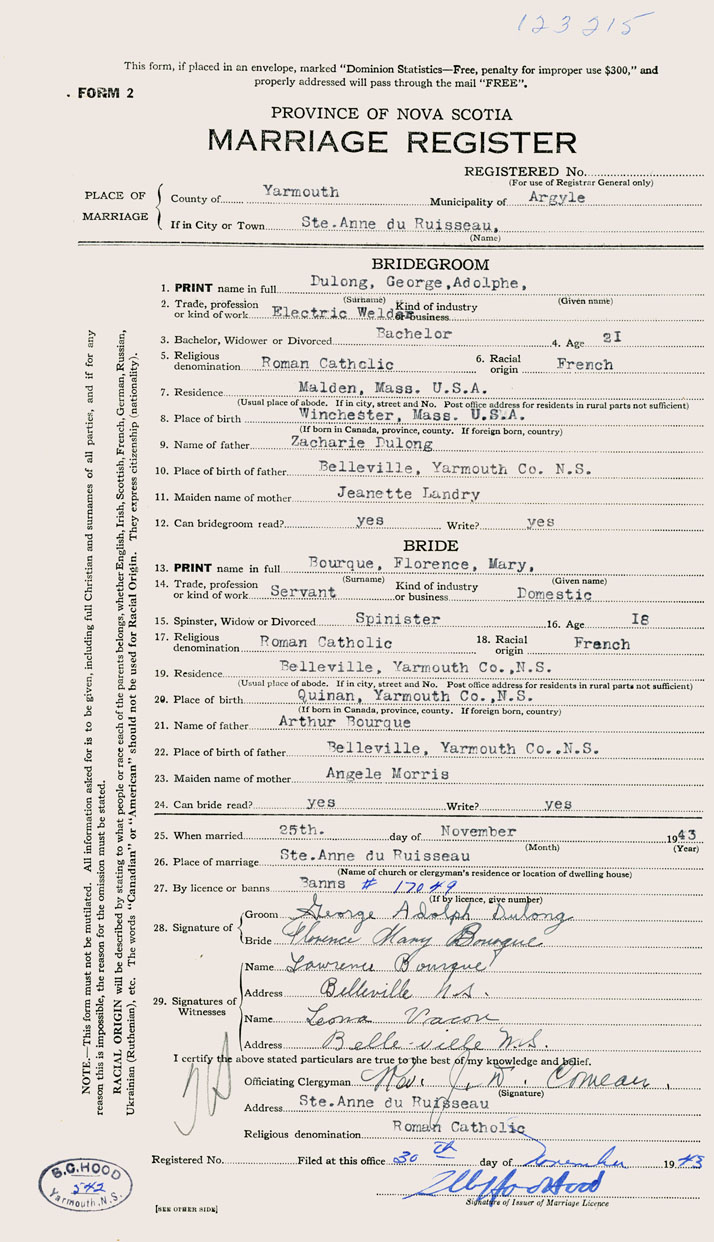 123215
This form, if placed in an envelope, marked "Dominion Statistics—Free, penalty for improper use $300," and
properly addressed will pass through the mail "FREE".
. FORM 2
PROVINCE OF NOVA SCOTIA
MARRIAGE REGISTER
REGISTERED No.
(For use of Registrar General only)
PLACE OF MARRIAGE
County of Yarmouth Municipality of Argyle
If in City or Town Ste.Anne du Ruisseau,
(Name)
BRIDEGROOM
1. PRINT name in full Dulong, George,Adolphe,
(Surname) (Given name)
2. Trade, profession or kind of work Electric Welder Kind of industry or business
3. Bachelor, Widower or Divorced Bachelor 4. Age 2I
5. Religious denomination Roman Catholic 6. Racial origin French
7. Residence Malden, Mass. U.S.A.
(Usual place of abode. If in city, street and No. Post office address for residents in rural parts not sufficient)
8. Place of birth Winchester, Mass. U.S.A.
(If born in Canada, province, county. If foreign born, country)
9. Name of father Zacharie Dulong
10. Place of birth of father Belleville, Yarmouth Co. N.S.
11. Maiden name of mother Jeanette Landry
12. Can bridegroom read? yes Write? yes
BRIDE
13. PRINT name in full Bourque, Florence, Mary,
(Surname) (Given name)
14. Trade, profession or kind of work Servant Kind of industry or business Domestic
15. Spinster, Widow or Divorced Spinister 16. Age I8
17. Religious denomination Roman Catholic 18. Racial origin French
19. Residence Belleville, Yarmouth Co.,N.S.
(Usual place of abode. If in city, street and No. Post office address for residents in rural parts not sufficient)
20. Place of birth Quinan, Yarmouth Co.,N.S.
(If born in Canada, province, county. If foreign born, country)
21. Name of father Arthur Bourque
22. Place of birth of father Belleville, Yarmouth Co..N.S.
23. Maiden name of mother Angele Morris
24. Can bride read? yes Write? yes
25. When married 25th. day of November 1943
(Month) (Year)
26. Place of marriage Ste.Anne du Ruisseau
(Name of church or clergyman's residence or location of dwelling house)
27. By licence or banns Banns # 17049
(If by licence, give number)
28. Signature of
Groom George Adolph Dulong
Bride Florence Mary Bourque
29. Signatures of Witnesses
Name Lawrence Bourque
Address Belleville N.S.
Name Leona Vacon
Address Belle-ville N.S.
I certify the above stated particulars are true to the best of my knowledge and belief.
Officiating Clergyman Rev. J. W. Comeau,
(Signature)
Address Ste.Anne du Ruisseau
Religious denomination Roman Catholic
Registered No. Filed at this office 30th day of November 1943
Signature of Issuer of Marriage Licence
[SEE OTHER SIDE]
S.C. HOOD
542
Yarmouth, N.S.
NOTE.—This form must not be mutilated. All information asked for is to be given, including full Christian and surnames of all parties, and if for any
reason this is impossible, the reason for the omission must be stated.
RACIAL ORIGIN will be described by stating to what people or race each of the parents belongs, whether English, Irish, Scottish, French, German, Russian,
Ukrainian (Ruthenian), etc. The words "Canadian" or "American" should not be used for Racial Origin. They express citizenship (nationality).